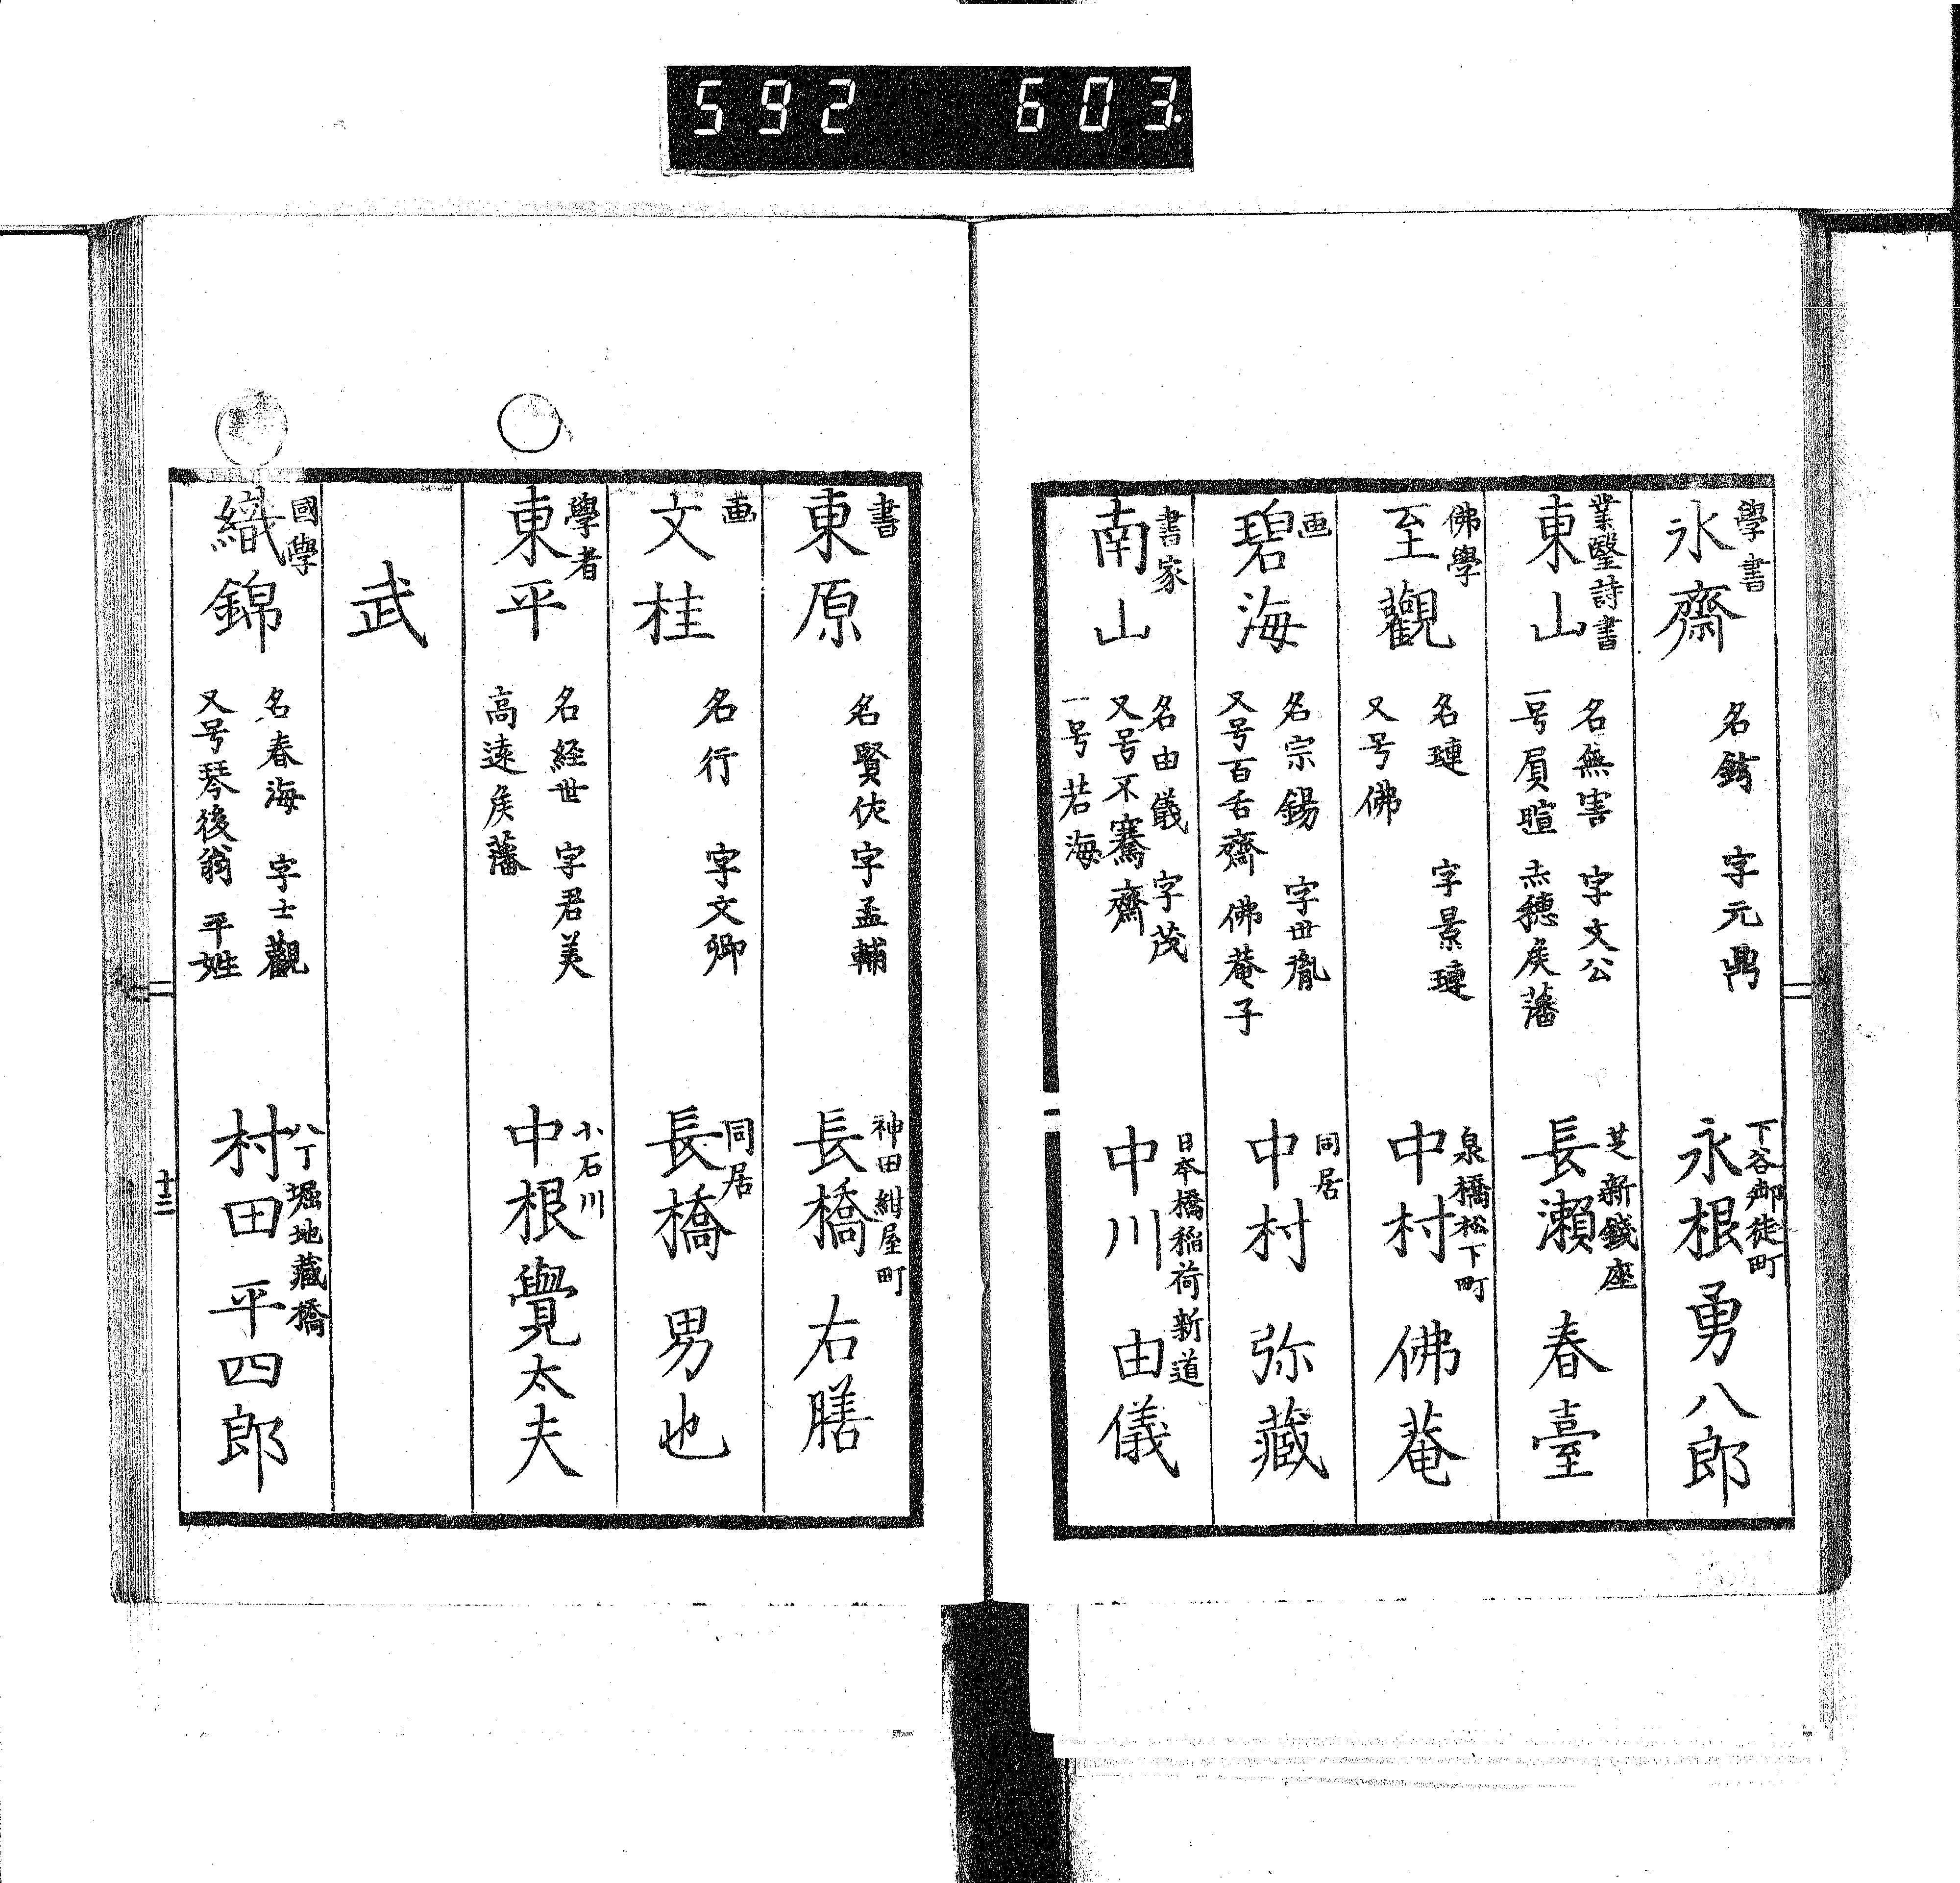 592 603
學書
氷齋
名鋳 字元鼎
下谷御徒町
永根勇八郎
業毉詩書
東山
名無害 字文公
一号負暄 赤穂矦藩
芝新錢座
長瀬春臺
佛學
至觀
名璉 字景璉
又号佛
泉橋松下町
中村佛菴
画
碧海
名宗錫 字世胤
又号百舌齋 佛菴子
同居
中村弥藏
書家
南山
名由儀 字茂
又号不騫齋
一号若海
日本橋稲荷新道
中川由儀
書
東原
名賢佐 字孟輔
神田紺屋町
長橋右膳
画
文桂
名行 字文卿
同居
長橋男也
學者
東平
名経世 字君美
高遠矦藩
小石川
中根覺太夫
武
國學
織錦
名春海 字士觀
又号琴後翁 平姓
八丁堀地藏橋
村田平四郎
十二